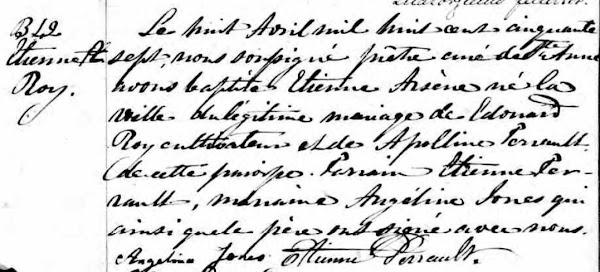 B 42
Etienne A.
Roy.
Le huit Avril mil huit cent cinquante
sept, nous soussigné prêtre curé de Ste Anne
avons baptisé Etienne Arsène né la
veille du légitime mariage de Edouard
Roy cultivateur et de Apolline Perrault
de cette paroisse. Parrain Etienne Per-
rault, marraine Angéline Jones qui
ainsi que le père ont signé avec nous.
Angelina Jones Etienne Perrault.